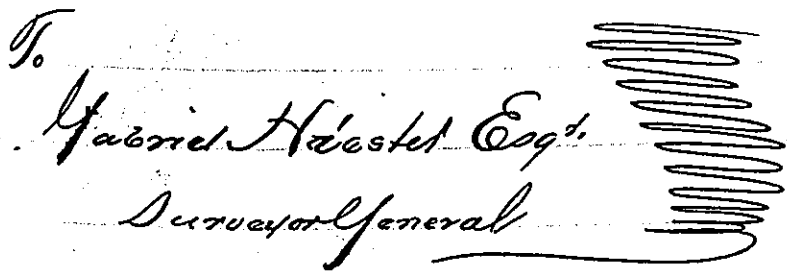 To
Gabriel Hiester Esqr.
Surveyor General